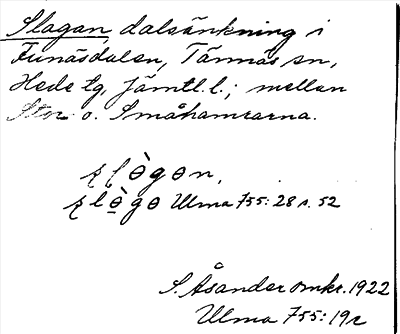 Slagan, dalsänkning i
Funäsdalen, Tännäs sn,
Hede tg, Jämtl. l.; mellan
Stor- o. Småhamrarna.
ʂɭògon,
ʂlògo Ulma 755: 28 s. 52
S. Åsander omkr. 1922
Ulma 755: 19